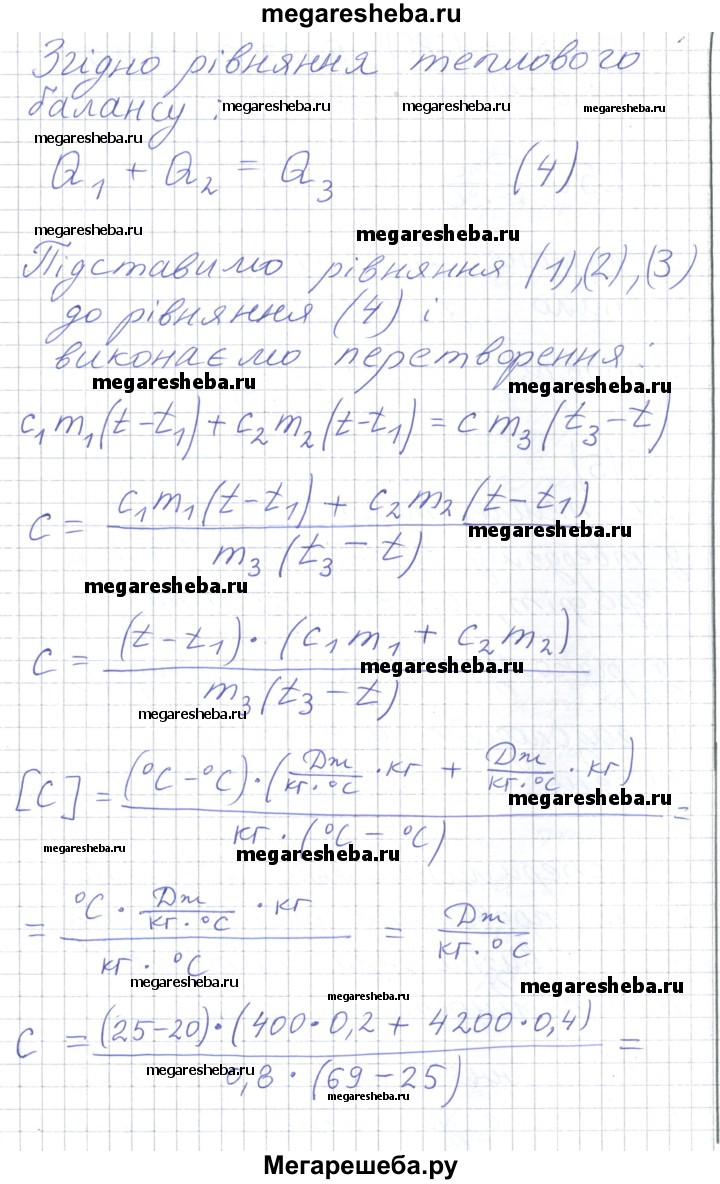 megaresheba.ru
Згідно рівняння теплового
балансу :
megaresheba.ru megaresheba.ru megaresheba.ru
megaresheba.ru
Q₁ + Q₂ = Q₃ (4)
megaresheba.ru
megaresheba.ru
Підставимо рівняння (1),(2),(3)
до рівняння (4) і
виконаємо перетворення:
megaresheba.ru megaresheba.ru
c₁m₁(t-t₁)+c₂m₂(t-t₁)=cm₃(t₃-t)
c = c₁m₁(t-t₁) + c₂m₂(t-t₁) / m₃(t₃-t)
megaresheba.ru
megaresheba.ru
c = (t-t₁)·(c₁m₁ + c₂m₂) / m₃(t₃-t)
megaresheba.ru
megaresheba.ru
[c] = (°C-°C)·(Дж/кг·°C ·кг + Дж/кг·°C ·кг) / кг·(°C-°C) =
megaresheba.ru
megaresheba.ru
megaresheba.ru
= °C · Дж/кг·°C · кг / кг·°C = Дж/кг·°C
megaresheba.ru megaresheba.ru
megaresheba.ru
c = (25-20)·(400·0,2 + 4200·0,4) / 0,8·(69-25) =
megaresheba.ru megaresheba.ru
megaresheba.ru
Мегарешеба.ру